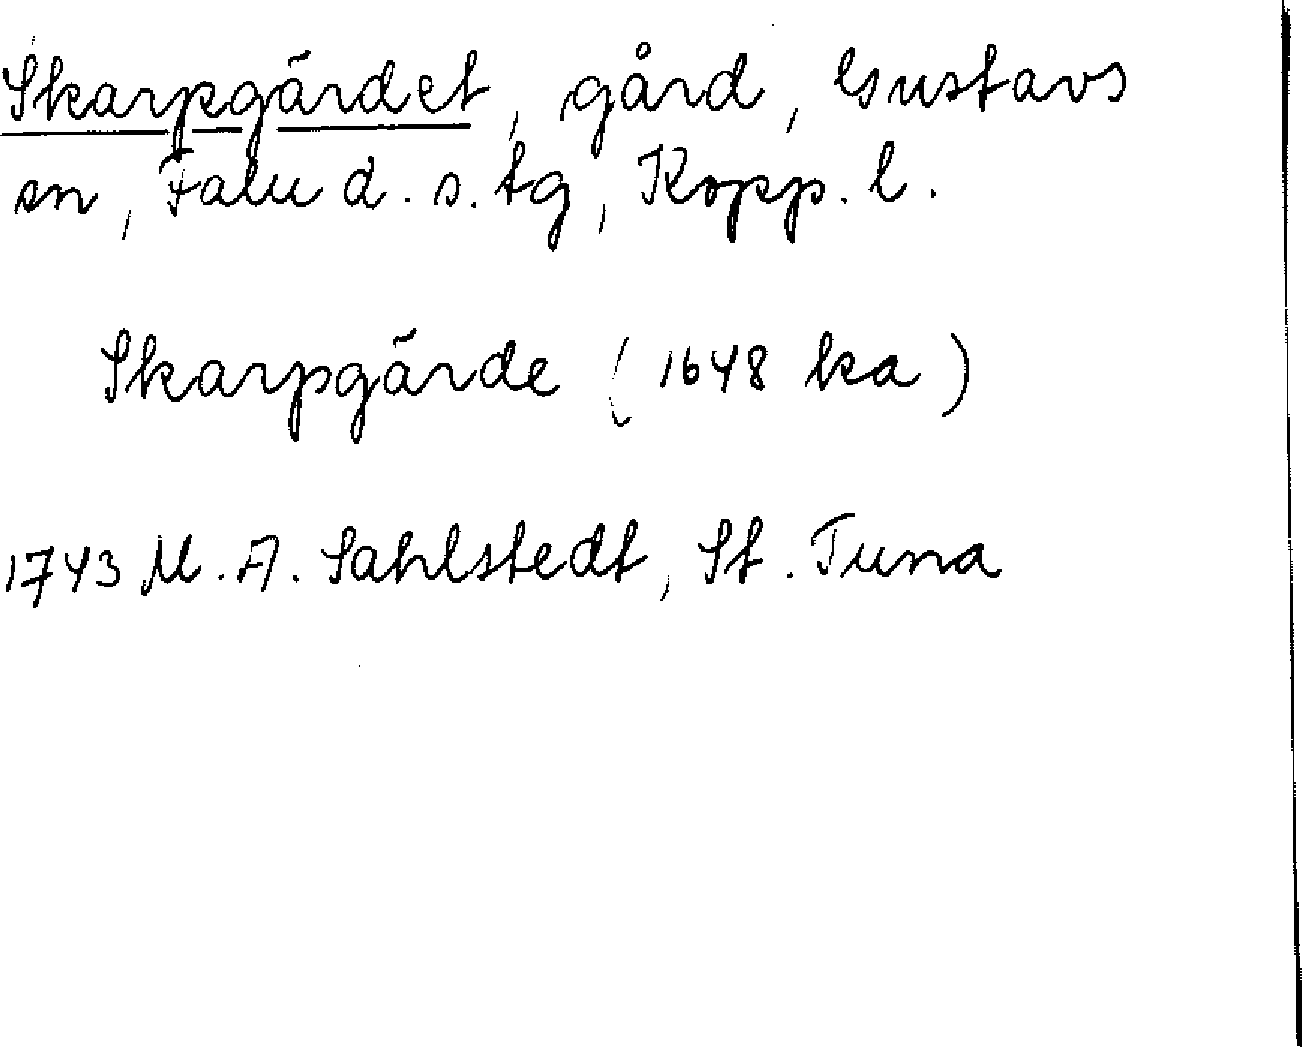 Skarpgärdet, gård, Gustavs
sn, Falu d. s. tg, Kopp. l.
Skarpgärde (1648 ka)
1743 M. A. Sahlstedt, St. Tuna